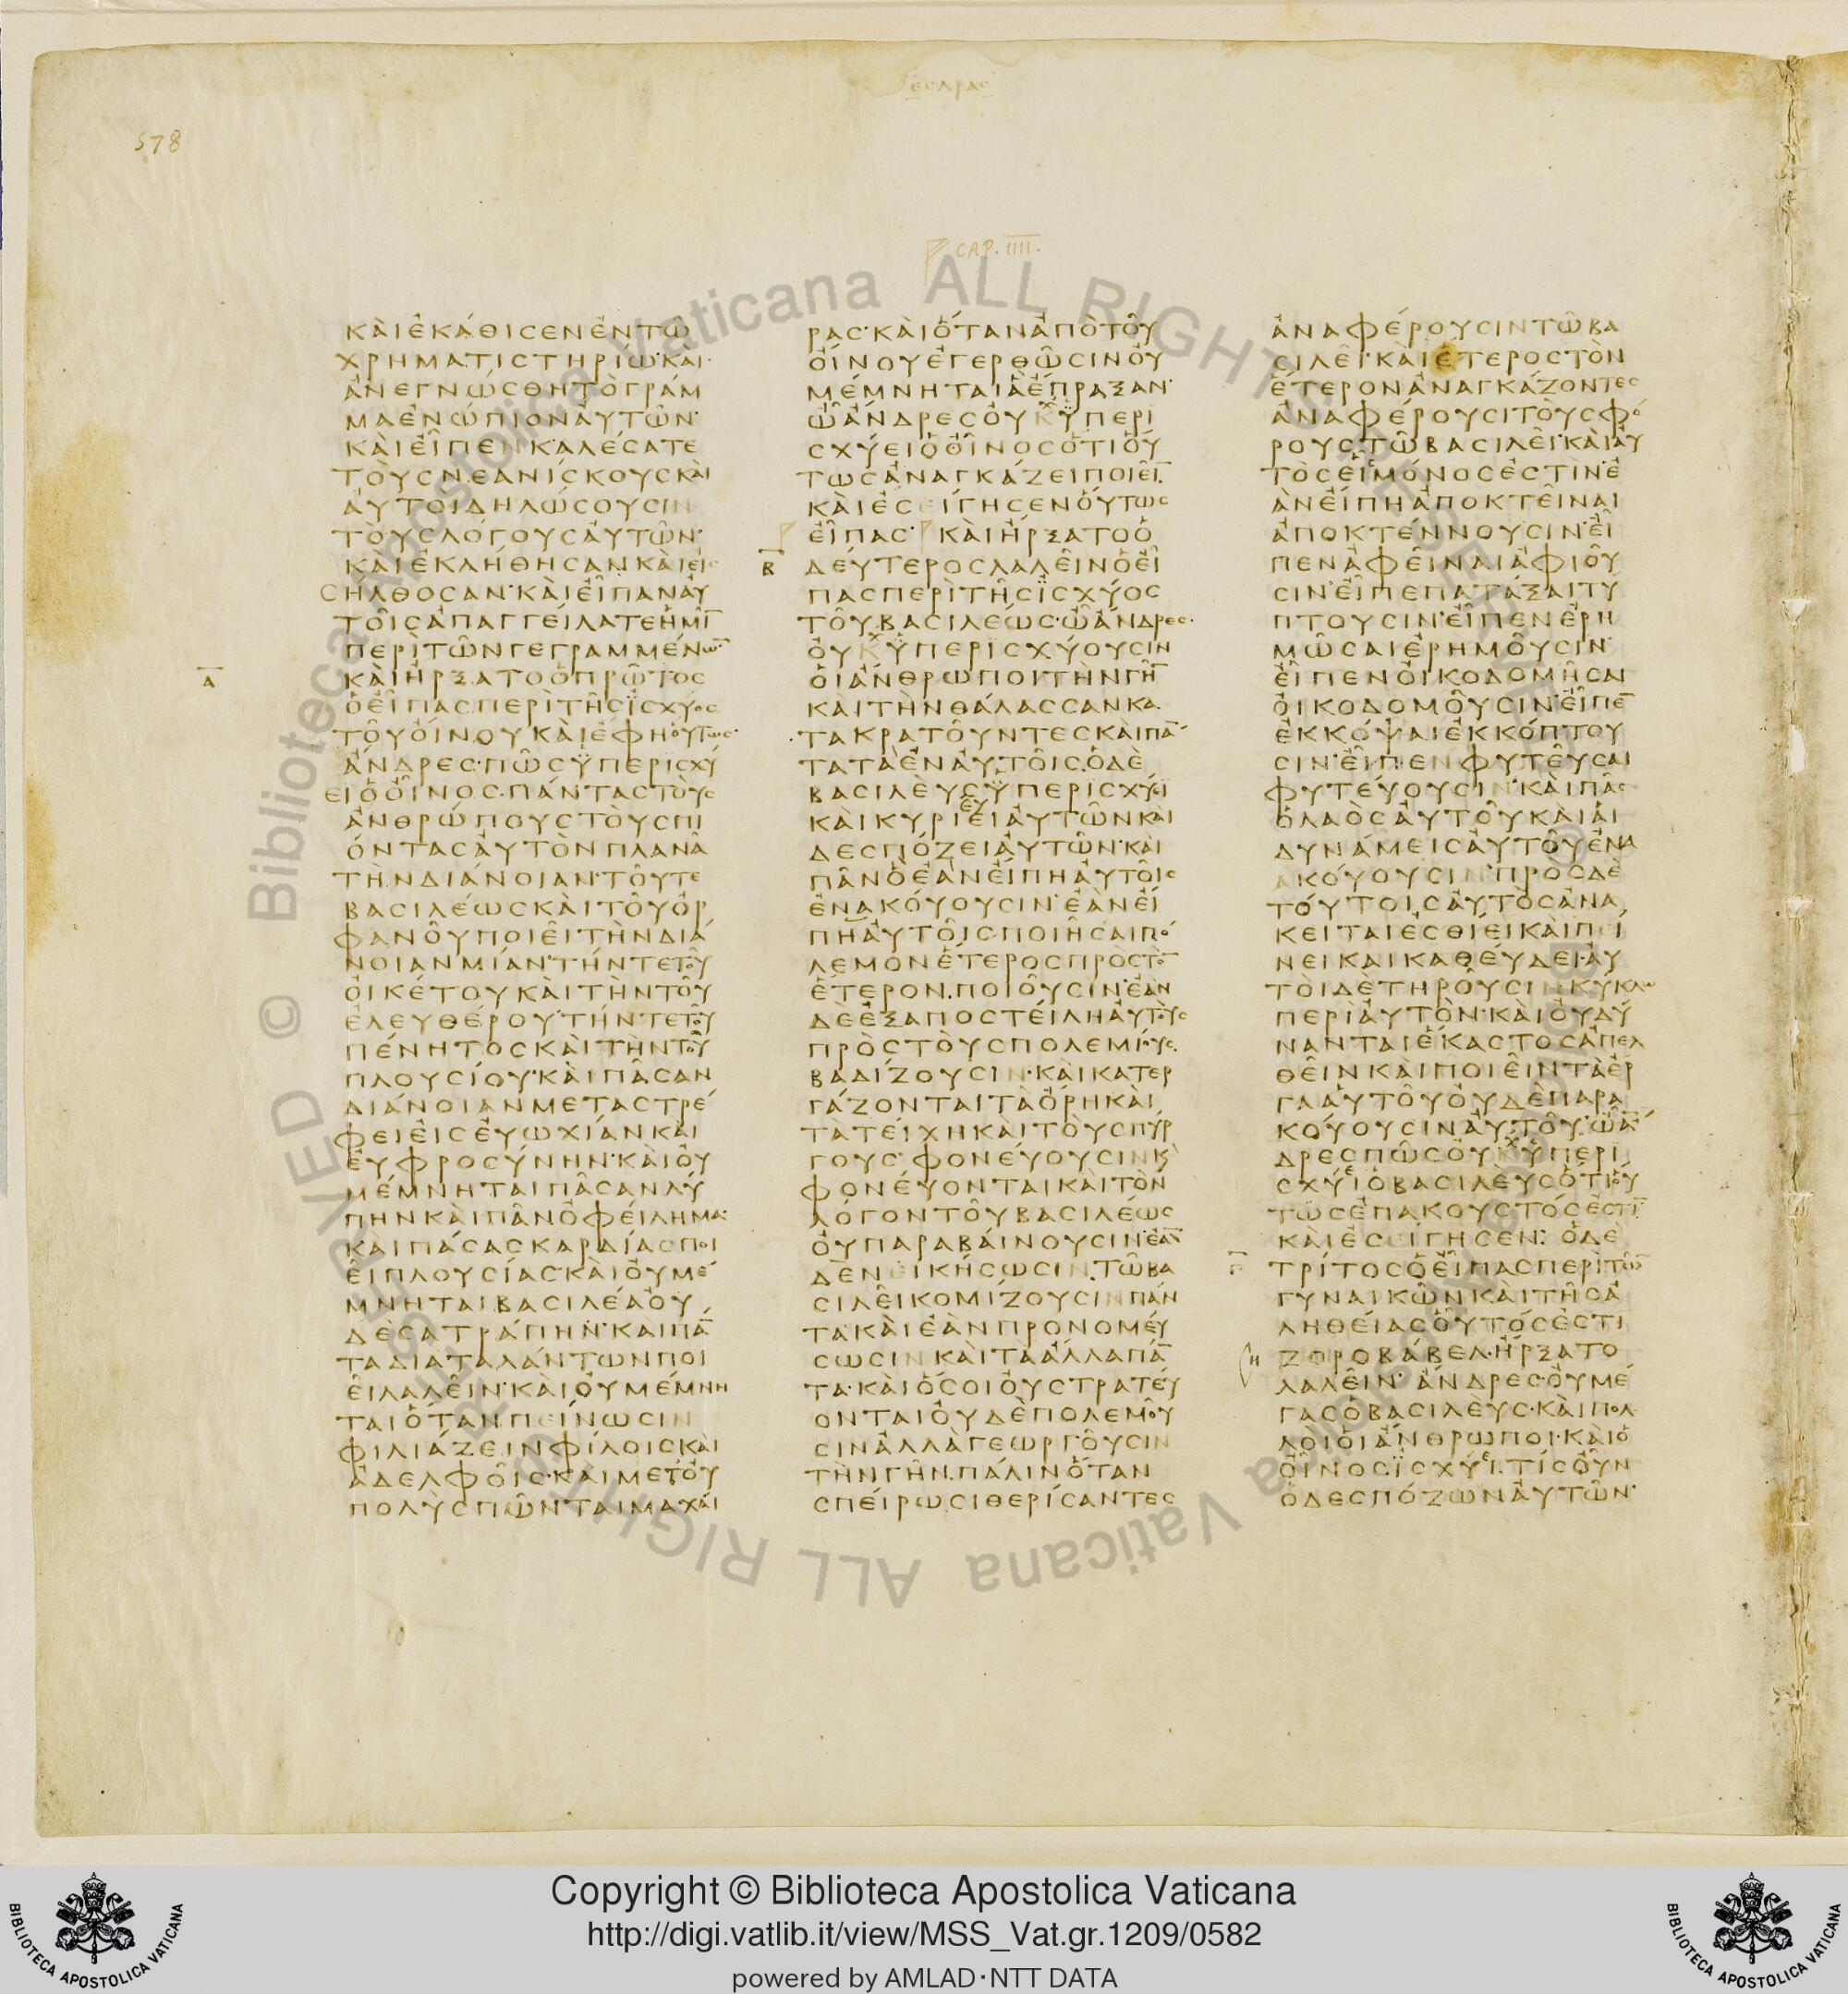 εσδρας
578
CAP. IIII.
ΚΑΙΕΚΑΘΙϹΕΝΕΝΤΩ
ΧΡΗΜΑΤΙϹΤΗΡΙΩ·ΚΑΙ·
ΑΝΕΓΝΩϹΘΗΤΟΓΡΑΜ
ΜΑΕΝΩΠΙΟΝΑΥΤΩΝ·
ΚΑΙΕΙΠΕΝΚΑΛΕϹΑΤΕ
ΤΟΥϹΝΕΑΝΙϹΚΟΥϹΚΑΙ
ΑΥΤΟΙΔΗΛΩϹΟΥϹΙΝ
ΤΟΥϹΛΟΓΟΥϹΑΥΤΩΝ·
ΚΑΙΕΚΛΗΘΗϹΑΝΚΑΙΕΙϹ
ϹΗΛΘΟϹΑΝ·ΚΑΙΕΙΠΑΝΑΥ
ΤΟΙϹΑΠΑΓΓΕΙΛΑΤΕΗΜΙ̅
ΠΕΡΙΤΩΝΓΕΓΡΑΜΜΕΝΩ̅
Α
ΚΑΙΗΡΞΑΤΟΟΠΡΩΤΟϹ
ΟΕΙΠΑϹΠΕΡΙΤΗϹΪϹΧΥΟϹ
ΤΟΥΟΙΝΟΥΚΑΙΕΦΗΟΥΤΩϹ·
ΑΝΔΡΕϹ·ΠΩϹΫΠΕΡΙϹΧΥ
ΕΙΟΟΙΝΟϹ·ΠΑΝΤΑϹΤΟΥϹ
ΑΝΘΡΩΠΟΥϹΤΟΥϹΠΙ
ΟΝΤΑϹΑΥΤΟΝΠΛΑΝΑ
ΤΗΝΔΙΑΝΟΙΑΝ·ΤΟΥΤΕ
ΒΑϹΙΛΕΩϹΚΑΙΤΟΥΟΡ
ΦΑΝΟΥΠΟΙΕΙΤΗΝΔΙΑ
ΝΟΙΑΝΜΙΑΝ·ΤΗΝΤΕΤΟΥ
ΟΙΚΕΤΟΥΚΑΙΤΗΝΤΟΥ
ΕΛΕΥΘΕΡΟΥ·ΤΗΝΤΕΤΟΥ
ΠΕΝΗΤΟϹΚΑΙΤΗΝΤΟΥ
ΠΛΟΥϹΙΟΥ·ΚΑΙΠΑϹΑΝ
ΔΙΑΝΟΙΑΝΜΕΤΑϹΤΡΕ
ΦΕΙΕΙϹΕΥΩΧΙΑΝΚΑΙ
ΕΥΦΡΟϹΥΝΗΝ·ΚΑΙΟΥ
ΜΕΜΝΗΤΑΙΠΑϹΑΝΛΥ
ΠΗΝΚΑΙΠΑΝΟΦΕΙΛΗΜΑ·
ΚΑΙΠΑϹΑϹΚΑΡΔΙΑϹΠΟΙ
ΕΙΠΛΟΥϹΙΑϹ·ΚΑΙΟΥΜΕ
ΜΝΗΤΑΙΒΑϹΙΛΕΑΟΥ
ΔΕϹΑΤΡΑΠΗΝ·ΚΑΙΠΑ̅
ΤΑΔΙΑΤΑΛΑΝΤΩΝΠΟΙ
ΕΙΛΑΛΕΙΝ·ΚΑΙΟΥΜΕΜΝΗ
ΤΑΙΟΤΑΝΠΕΙΝΩϹΙΝ
ΦΙΛΙΑΖΕΙΝΦΙΛΟΙϹΚΑΙ
ΑΔΕΛΦΟΙϹ·ΚΑΙΜΕΤΟΥ
ΠΟΛΥϹΠΩΝΤΑΙΜΑΧΑΙ
ΡΑϹ·ΚΑΙΟΤΑΝΑΠΟΤΟΥ
ΟΙΝΟΥΕΓΕΡΘΩϹΙΝΟΥ
ΜΕΜΝΗΤΑΙΑΕΠΡΑΞΑΝ·
ΩΑΝΔΡΕϹΟΥΧΫΠΕΡΙ
ϹΧΥΕΙΟΟΙΝΟϹΟΤΙΟΥ
ΤΩϹΑΝΑΓΚΑΖΕΙΠΟΙΕΙ̅.
ΚΑΙΕϹΕΙΓΗϹΕΝΟΥΤΩϹ
ΕΙΠΑϹ· ΚΑΙΗΡΞΑΤΟΟ
Β
ΔΕΥΤΕΡΟϹΛΑΛΕΙΝΟΕΙ
ΠΑϹΠΕΡΙΤΗϹΪϹΧΥΟϹ
ΤΟΥΒΑϹΙΛΕΩϹ·ΩΑΝΔΡΕϹ·
ΟΥΧΫΠΕΡΙϹΧΥΟΥϹΙΝ
ΟΙΑΝΘΡΩΠΟΙΤΗΝΓΗ̅
ΚΑΙΤΗΝΘΑΛΑϹϹΑΝΚΑ
ΤΑΚΡΑΤΟΥΝΤΕϹΚΑΙΠΑ̅
ΤΑΤΑΕΝΑΥΤΟΙϹ·ΟΔΕ
ΒΑϹΙΛΕΥϹΫΠΕΡΙϹΧΥΕΙ
ΚΑΙΚΥΡΙΕΥΕΙΑΥΤΩΝΚΑΙ
ΔΕϹΠΟΖΕΙΑΥΤΩΝ·ΚΑΙ
ΠΑΝΟΕΑΝΕΙΠΗΑΥΤΟΙϹ
ΕΝΑΚΟΥΟΥϹΙΝ·ΕΑΝΕΙ
ΠΗΑΥΤΟΙϹΠΟΙΗϹΑΙΠΟ
ΛΕΜΟΝΕΤΕΡΟϹΠΡΟϹΤΟ̅
ΕΤΕΡΟΝ·ΠΟΙΟΥϹΙΝ·ΕΑΝ
ΔΕΕΞΑΠΟϹΤΕΙΛΗΑΥΤΟΥϹ
ΠΡΟϹΤΟΥϹΠΟΛΕΜΙΟΥϹ·
ΒΑΔΙΖΟΥϹΙΝ·ΚΑΙΚΑΤΕΡ
ΓΑΖΟΝΤΑΙΤΑΟΡΗΚΑΙ
ΤΑΤΕΙΧΗΚΑΙΤΟΥϹΠΥΡ
ΓΟΥϹ·ΦΟΝΕΥΟΥϹΙΝΚ
ΦΟΝΕΥΟΝΤΑΙΚΑΙΤΟΝ
ΛΟΓΟΝΤΟΥΒΑϹΙΛΕΩϹ
ΟΥΠΑΡΑΒΑΙΝΟΥϹΙΝ·ΕΑ̅
ΔΕΝΕΙΚΗϹΩϹΙΝΤΩΒΑ
ϹΙΛΕΙΚΟΜΙΖΟΥϹΙΝΠΑΝ
ΤΑΚΑΙΕΑΝΠΡΟΝΟΜΕΥ
ϹΩϹΙΝΚΑΙΤΑΑΛΛΑΠΑ̅
ΤΑ·ΚΑΙΟϹΟΙΟΥϹΤΡΑΤΕΥ
ΟΝΤΑΙΟΥΔΕΠΟΛΕΜΟΥ
ϹΙΝΑΛΛΑΓΕΩΡΓΟΥϹΙΝ
ΤΗΝΓΗΝ·ΠΑΛΙΝΟΤΑΝ
ϹΠΕΙΡΩϹΙΘΕΡΙϹΑΝΤΕϹ
ΑΝΑΦΕΡΟΥϹΙΝΤΩΒΑ
ϹΙΛΕΙ·ΚΑΙΕΤΕΡΟϹΤΟΝ
ΕΤΕΡΟΝΑΝΑΓΚΑΖΟΝΤΕϹ
ΑΝΑΦΕΡΟΥϹΙΤΟΥϹΦΟ
ΡΟΥϹΤΩΒΑϹΙΛΕΙ·ΚΑΙΑΥ
ΤΟϹΕΙϹΜΟΝΟϹΕϹΤΙΝ·Ε
ΑΝΕΙΠΗΑΠΟΚΤΕΙΝΑΙ
ΑΠΟΚΤΕΝΝΟΥϹΙΝ·ΕΙ
ΠΕΝΑΦΕΙΝΑΙΑΦΙΟΥ
ϹΙΝ·ΕΙΠΕΠΑΤΑΞΑΙΤΥ
ΠΤΟΥϹΙΝ·ΕΙΠΕΝΕΡΗ
ΜΩϹΑΙΕΡΗΜΟΥϹΙΝ·
ΕΙΠΕΝΟΙΚΟΔΟΜΗϹΑΙ
ΟΙΚΟΔΟΜΟΥϹΙΝ·ΕΙΠΕ̅
ΕΚΚΟΨΑΙΕΚΚΟΠΤΟΥ
ϹΙΝ·ΕΙΠΕΝΦΥΤΕΥϹΑΙ
ΦΥΤΕΥΟΥϹΙΝ·ΚΑΙΠΑϹ
ΟΛΑΟϹΑΥΤΟΥΚΑΙΑΙ
ΔΥΝΑΜΕΙϹΑΥΤΟΥΕΝΑ
ΑΚΟΥΟΥϹΙΝ·ΠΡΟϹΔΕ
ΤΟΥΤΟΙϹΑΥΤΟϹΑΝΑ
ΚΕΙΤΑΙΕϹΘΙΕΙΚΑΙΠΕΙ
ΝΕΙΚΑΙΚΑΘΕΥΔΕΙ·ΑΥ
ΤΟΙΔΕΤΗΡΟΥϹΙΝΚΥΚΛΩ
ΠΕΡΙΑΥΤΟΝ·ΚΑΙΟΥΔΥ
ΝΑΝΤΑΙΕΚΑϹΤΟϹΑΠΕΛ
ΘΕΙΝΚΑΙΠΟΙΕΙΝΤΑΕΡ
ΓΑΑΥΤΟΥΟΥΔΕΠΑΡΑ
ΚΟΥΟΥϹΙΝΑΥΤΟΥ·ΩΑ̅
ΔΡΕϹΠΩϹΟΥΧΫΠΕΡΙ
ϹΧΥΕΙΟΒΑϹΙΛΕΥϹΟΤΙΟΥ
ΤΩϹΕΠΑΚΟΥϹΤΟϹΕϹΤΙ̅
ΚΑΙΕϹΕΙΓΗϹΕΝ: ΟΔΕ
Γ
ΤΡΙΤΟϹΟΕΙΠΑϹΠΕΡΙΤΩ̅
ΓΥΝΑΙΚΩΝΚΑΙΤΗϹΑ
ΛΗΘΕΙΑϹΟΥΤΟϹΕϹΤΙ
Η
ΖΟΡΟΒΑΒΕΛ·ΗΡΞΑΤΟ
ΛΑΛΕΙΝ· ΑΝΔΡΕϹ·ΟΥΜΕ
ΓΑϹΟΒΑϹΙΛΕΥϹ·ΚΑΙΠΟΛ
ΛΟΙΟΙΑΝΘΡΩΠΟΙ·ΚΑΙΟ
ΟΙΝΟϹΪϹΧΥΕΙ·ΤΙϹΟΥΝ
ΟΔΕϹΠΟΖΩΝΑΥΤΩΝ·
© Biblioteca Apostolica Vaticana ALL RIGHTS RESERVED
Copyright © Biblioteca Apostolica Vaticana
http://digi.vatlib.it/view/MSS_Vat.gr.1209/0582
powered by AMLAD·NTT DATA
BIBLIOTECA APOSTOLICA VATICANA
BIBLIOTECA APOSTOLICA VATICANA